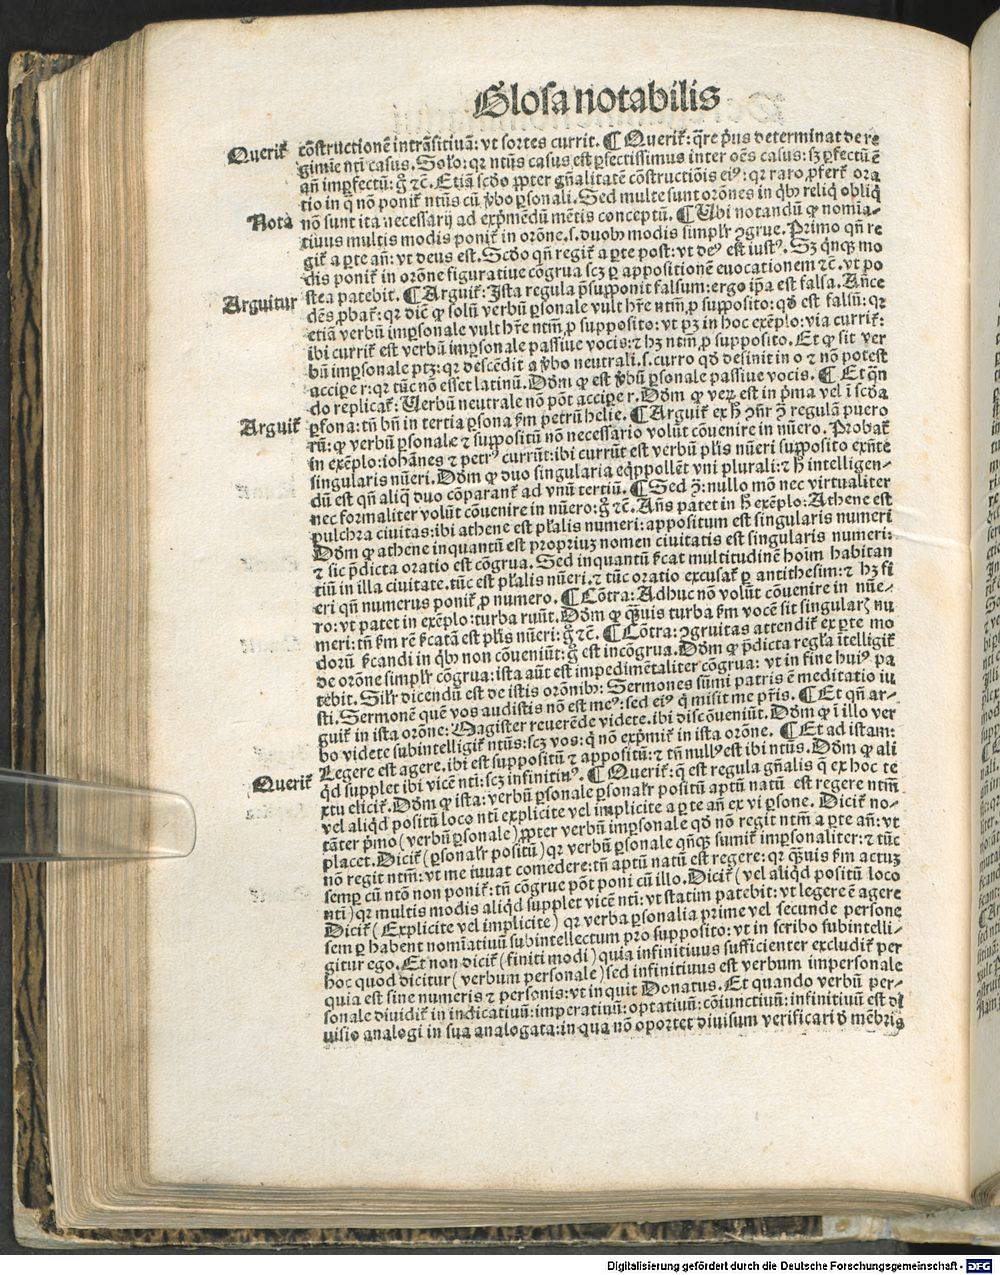 Glosa notabilis
Querit᷑ cōstructionē intrāsitiuā: vt sortes currit. ¶ Querit᷑: q̄re p̄us determinat de re
gimīe nt̄i casus. Solo: qr nt̄us casus est ꝑfectissimus inter oēs casus: sꝫ ꝑfectū ē
an̄ imꝑfectū: g̊ ⁊c̄. Etiā scd̄o ꝓpter gn̄alitatē cōstructiōis eiꝰ: qr raro ꝓfert᷑ ora
tio in q̄ nō ponit᷑ nt̄us cū v̓bo ꝑsonali. Sed multe sunt orōnes in qb́ꝫ reliq̄ obliq̄
Nota nō sunt ita necessarij ad exp̄mēdū mētis conceptū. ¶ Ubi notandū ꝙ nomīa⸗
tiuus multis modis ponit᷑ in orōne. s. duobꝫ modis simplr̄ ꝯgrue. Primo qn̄ re
git᷑ a ꝑte an̄: vt deus est. Scd̄o qn̄ regit᷑ a ꝑte post: vt deꝰ est iustꝰ. Sꝫ qn̄qꝫ mo
dis ponit᷑ in orōne figuratiue cōgrua scꝫ ꝑ appositionē euocationem ⁊c̄. vt po
Arguitur stea patebit. ¶ Arguit᷑: Ista regula p̄supponit falsum: ergo ip̄a est falsa. An̄ce
dēs ꝓbat᷑: qr dic̄ ꝙ solū verbū ꝑsonale vult hr̄e ntm̄ ꝓ supposito: qd̓ est falsū: qr
etiā verbū imꝑsonale vult hr̄e ntm̄ ꝓ supposito: vt pꝫ in hoc exēplo: via currit᷑:
ibi currit᷑ est verbū imꝑsonale passiue vocis: ⁊ hꝫ ntm̄ ꝓ supposito. Et ꝙ sit ver
bū imꝑsonale ptꝫ: qr descēdit a v̓bo neutrali. s. curro qd̓ desinit in o ⁊ nō potest
accipere r: qr tūc nō esset latinū. Dd̓m ꝙ est v̓bū ꝑsonale passiue vocis. ¶ Et qn̄
do replicat᷑: Uerbū neutrale nō pōt accipere r. Dd̓m ꝙ veꝝ est in p̄ma vel ī scd̄a
Arguit᷑ ꝑsona: tn̄ bn̄ in tertia ꝑsona ẜm petrū helie. ¶ Arguit᷑ ex h̓ ꝯn̄r ꝯ̄ regulā puero
rū: ꝙ verbū ꝑsonale ⁊ suppositū nō necessario volūt cōuenire in nūero. Probat᷑
in exēplo: iohānes ⁊ petrꝰ currūt: ibi currūt est verbū pl̄is nūeri supposito exn̄te
singularis nūeri. Dd̓m ꝙ duo singularia eq̄ppollēt vni plurali: ⁊ h̓ intelligen⸗
dū est qn̄ aliq̄ duo cōparant᷑ ad vnū tertiū. ¶ Sed ꝯ̄: nullo mō nec virtualiter
nec formaliter volūt cōuenire in nūero: g̊ ⁊c̄. An̄s patet in h̓ exēplo: Athene est
pulchra ciuitas: ibi athene est pl̄alis numeri: appositum est singularis numeri
Dd̓m ꝙ athene inquantū est propriuꝫ nomen ciuitatis est singularis numeri:
⁊ sic p̄dicta oratio est cōgrua. Sed inquantū ẜcat multitudinē hoīm habitan
tiū in illa ciuitate. tūc est pl̄alis nūeri. ⁊ tūc oratio excusat᷑ ꝑ antithesim: ⁊ hꝫ fi
eri qn̄ numerus ponit᷑ ꝓ numero. ¶ Cōtra: Adhuc nō volūt cōuenire in nūe⸗
ro: vt patet in exēplo: turba ruūt. Dd̓m ꝙ q̄ꝫuis turba ẜm vocē sit singularꝭ nu
meri: tn̄ ẜm rē ẜcatā est pl̄is nūeri: g̊ ⁊c̄. ¶ Cōtra: ꝯgruitas attendit᷑ ex ꝑte mo
dorū ẜcandi in qb́ꝫ non cōueniūt: g̊ est incōgrua. Dd̓m ꝙ p̄dicta regl̄a ītelligit᷑
de orōne simplr̄ cōgrua: ista aūt est impedimētaliter cōgrua: vt in fine huiꝰ pa
tebit. Silr̄ dicendū est de istis orōnibꝫ: Sermones sūmi patris ē meditatio iu
sti. Sermonē quē vos audistis nō est meꝰ: sed eiꝰ q̇ misit me pr̄is. ¶ Et qn̄ ar⸗
guit᷑ in ista orōne: Magister reuerēde videte. ibi discōueniūt. Dd̓m ꝙ ī illo ver
bo videte subintelligit᷑ ntūs: scꝫ vos: q̇ nō exp̄mit᷑ in ista orōne. ¶ Et ad istam:
Legere est agere. ibi est suppositū ⁊ appositū: ⁊ tn̄ nullꝰ est ibi ntūs. Dd̓m ꝙ ali
Querit᷑ qd̓ supplet ibi vicē nt̄i: scꝫ infinitiuꝰ. ¶ Querit᷑: q̄ est regula gn̄alis q̄ ex hoc te
xtu elicit᷑. Dd̓m ꝙ ista: verbū ꝑsonale ꝑsonalr̄ positū aptū natū est regere ntm̄
vel aliqd̓ positū loco nt̄i explicite vel implicite a ꝑte an̄ ex vi ꝑsone. Dicit᷑ no⸗
tāter p̄mo (verbū ꝑsonale) ꝓpter verbū imꝑsonale qd̓ nō regit ntm̄ a ꝑte an̄: vt
placet. Dicit᷑ (ꝑsonalr̄ positū) qr verbū ꝑsonale qn̄qꝫ sumit᷑ imꝑsonaliter: ⁊ tūc
nō regit ntm̄: vt me iuuat comedere: tn̄ aptū natū est regere: qr q̄ꝫuis ẜm actuꝫ
semꝑ cū ntō non ponit᷑: tn̄ cōgrue pōt poni cū illo. Dicit᷑ (vel aliqd̓ positū loco
nt̄i) qr multis modis aliqd̓ supplet vicē nt̄i: vt statim patebit: vt legere ē agere
Dicit᷑ (Explicite vel implicite) qr verba ꝑsonalia prime vel secunde persone
semꝑ habent nomīatiuū subintellectum pro supposito: vt in scribo subintelli⸗
gitur ego. Et non dicit᷑ (finiti modi) quia infinitiuus sufficienter excludit᷑ per
hoc quod dicitur (verbum personale) sed infinitiuus est verbum impersonale
quia est sine numeris ⁊ personis: vt inquit Donatus. Et quando verbū per⸗
sonale diuidit᷑ in indicatiuū: imperatiuū: optatiuū: cōiunctiuū: infinitiuū est di
uisio analogi in sua analogata: in qua nō oportet diuisum verificari d̓ mēbris
Digitalisierung gefördert durch die Deutsche Forschungsgemeinschaft - DFG